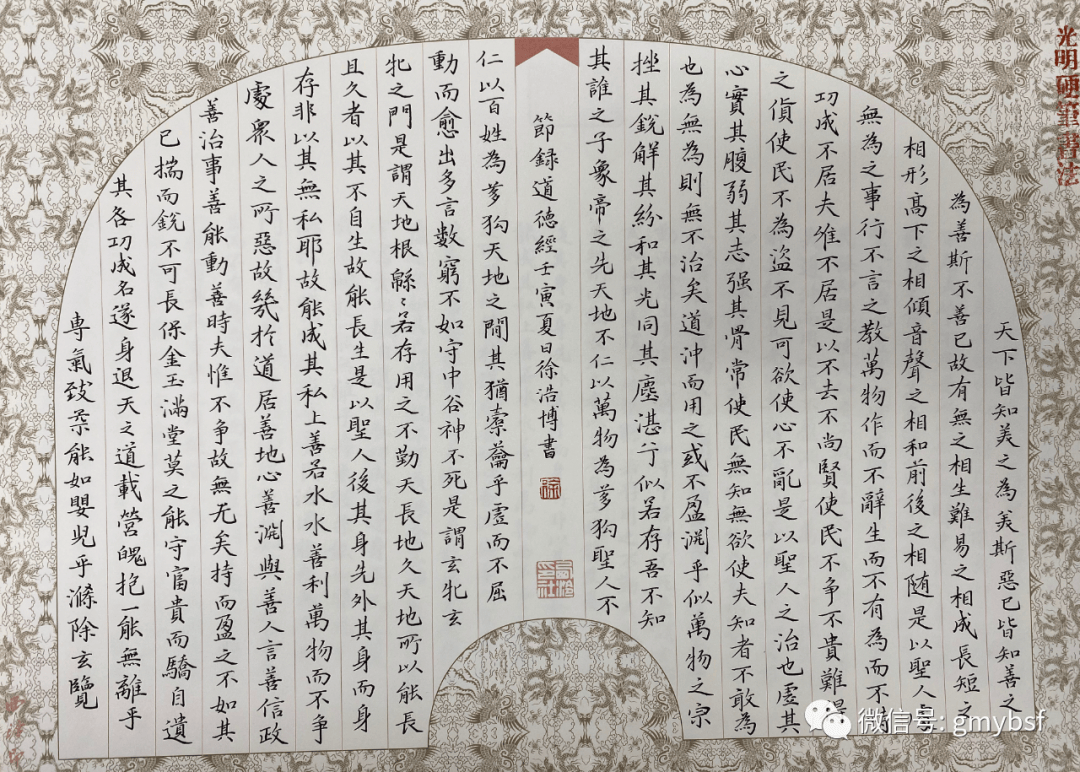 天下皆知美之為美斯惡已皆知善之
為善斯不善已故有無之相生難易之相成長短之
相形高下之相傾音聲之相和前後之相随是以聖人
無為之事行不言之教萬物作而不辭生而不有為而不
功成不居夫惟不居是以不去不尚賢使民不争不貴難得
之貨使民不為盗不見可欲使心不亂是以聖人之治也虛其
心實其腹弱其志强其骨常使民無知無欲使夫知者不敢為
也為無為則無不治矣道沖而用之或不盈渊乎似萬物之宗
挫其銳解其紛和其光同其塵湛兮似若存吾不知
其誰之子象帝之先天地不仁以萬物為芻狗聖人不
節録道德經壬寅夏日徐浩博書
仁以百姓為芻狗天地之間其猶橐籥乎虛而不屈
動而愈出多言數窮不如守中谷神不死是謂玄牝玄
牝之門是謂天地根緜〻若存用之不勤天長地久天地所以能長
且久者以其不自生故能長生是以聖人後其身先外其身而身
存非以其無私耶故能成其私上善若水水善利萬物而不争
處衆人之所惡故幾於道居善地心善渊與善人言善信政
善治事善能動善時夫惟不争故無无矣持而盈之不如其
已揣而銳不可長保金玉滿堂莫之能守富貴而驕自遺
其咎功成名遂身退天之道載營魄抱一能無離乎
専氣致柔能如嬰児乎滌除玄覽
光明硬筆書法
微信号: gmybsf